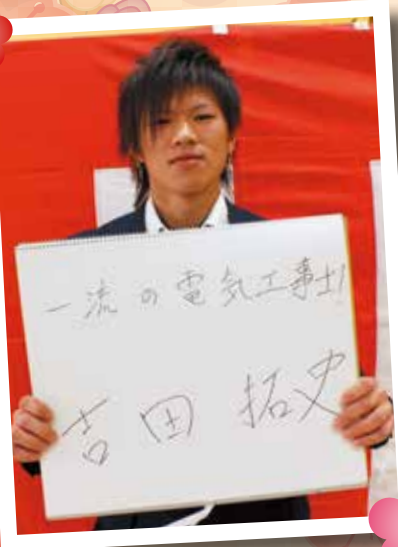 一流の電気工事士!
吉田 拓史